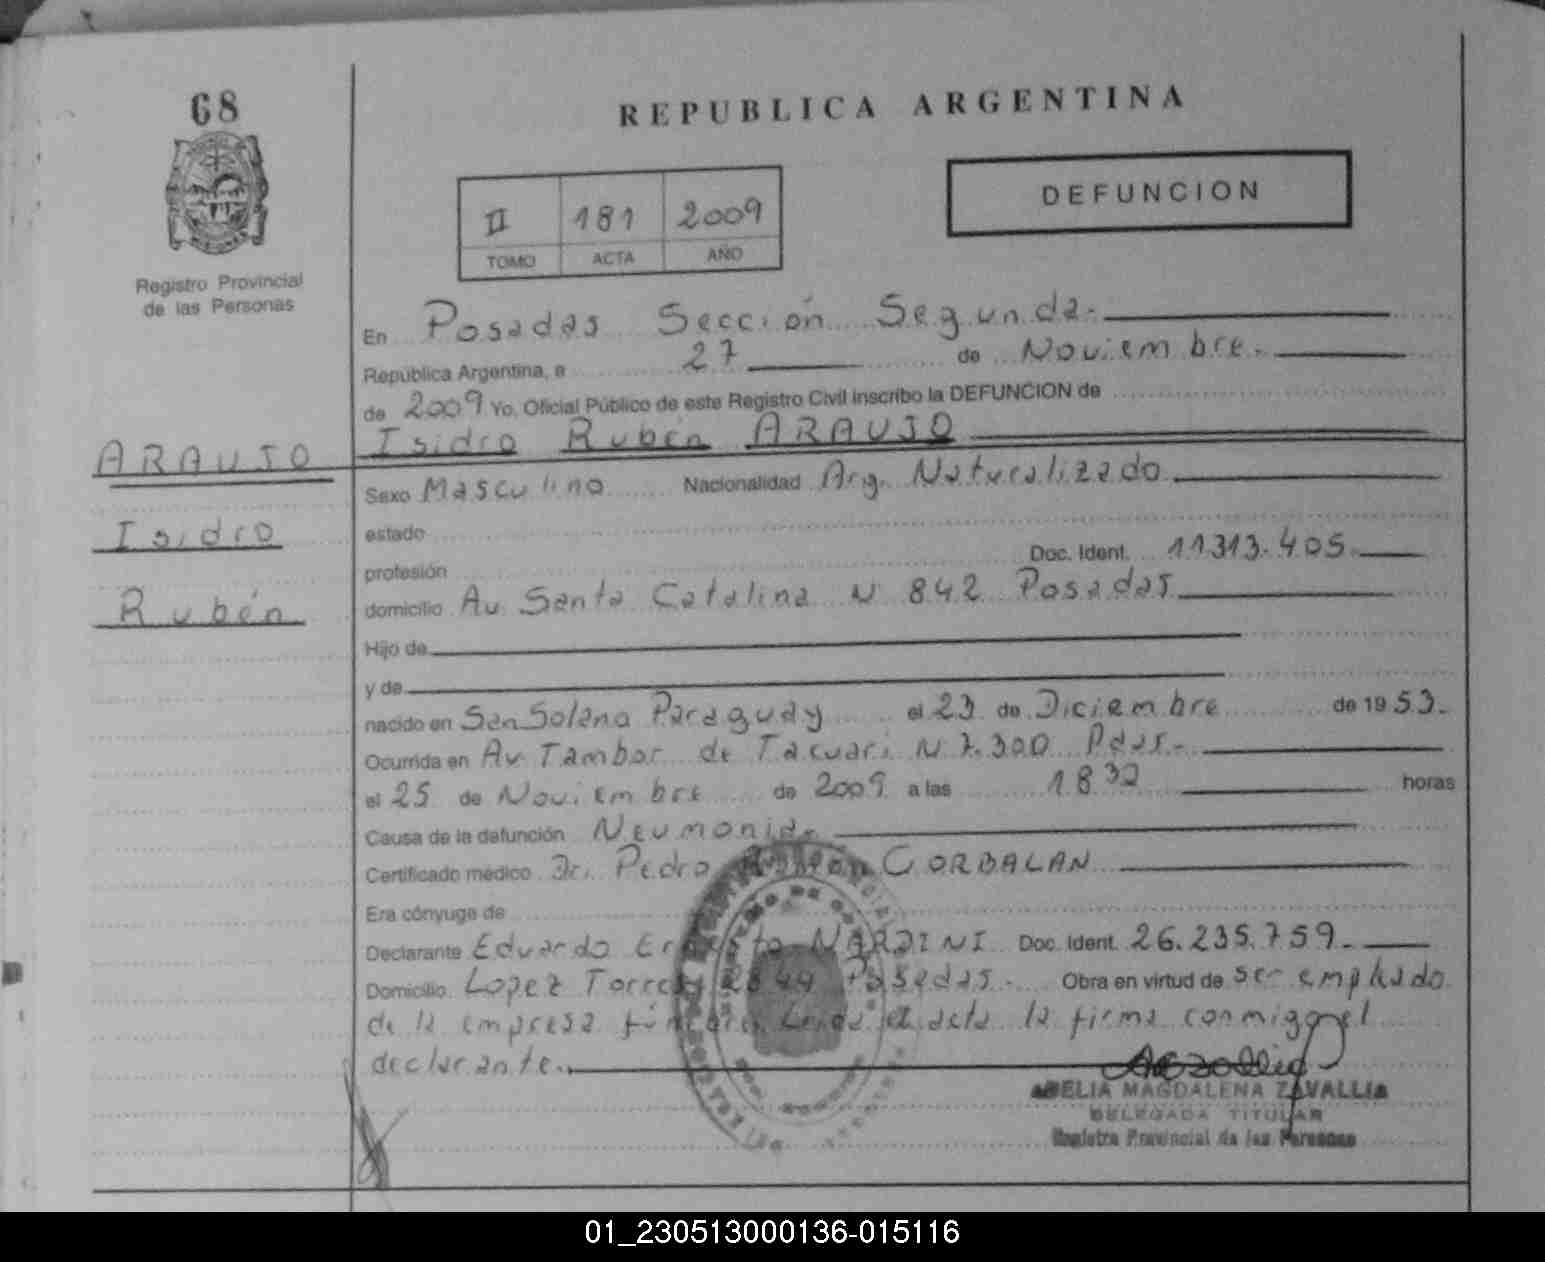 68
REPUBLICA ARGENTINA
DEFUNCION
II 181 2009
TOMO ACTA AÑO
Registro Provincial
de las Personas
En Posadas Sección Segunda.
República Argentina, a 27 de Noviembre.
de 2009 Yo, Oficial Público de este Registro Civil inscribo la DEFUNCION de
Isidro Rubén ARAUJO
ARAUJO
Isidro
Rubén
Sexo Masculino Nacionalidad Arg. Naturalizado
estado
profesión Doc. Ident. 11313.405.
domicilio Av. Santa Catalina N 842 Posadas
Hijo de
y de
nacido en San Solano Paraguay el 23 de Diciembre de 1953.
Ocurrida en Av Tambor de Tacuari N 7.300 Pdas.
el 25 de Noviembre de 2009 a las 18 32 horas
Causa de la defunción Neumonia.
Certificado médico Dr. Pedro CORBALAN
Era cónyuge de
Declarante Eduardo NARDINI Doc. Ident. 26.235.759.
Domicilio Lopez Torres Posadas. Obra en virtud de ser empleado
de la empresa el acta la firma conmigo el
declarante.
ABELIA MAGDALENA ZAVALLIA
DELEGADA TITULAR
Registro Provincial de las Personas
01_230513000136-015116